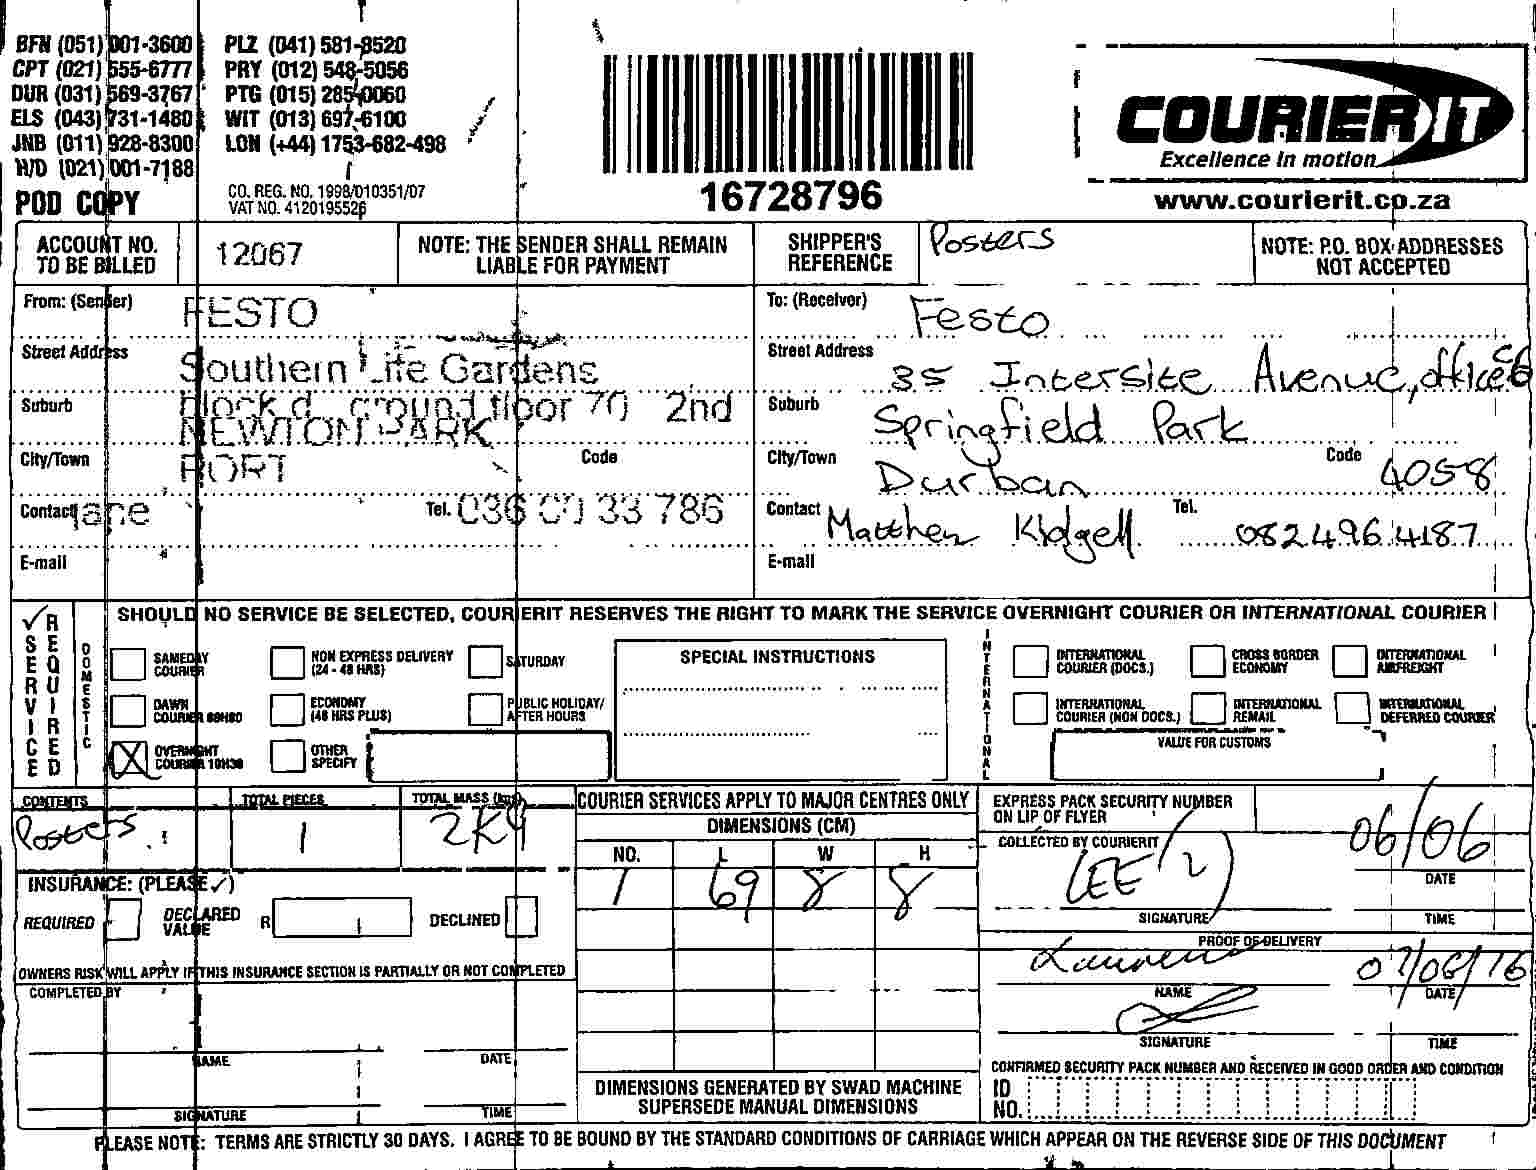 BFN (051) 001-3600 PLZ (041) 581-8520
CPT (021) 555-6777 PRY (012) 548-5056
DUR (031) 569-3767 PTG (015) 285-0060
ELS (043) 731-1480 WIT (013) 697-6100
JNB (011) 928-8300 LON (+44) 1753-682-498
H/D (021) 001-7188
POD COPY
CO. REG. NO. 1998/010351/07
VAT NO. 4120195526
16728796
COURIER IT
Excellence in motion
www.courierit.co.za
ACCOUNT NO. TO BE BILLED 12067
NOTE: THE SENDER SHALL REMAIN LIABLE FOR PAYMENT
SHIPPER'S REFERENCE Posters
NOTE: P.O. BOX ADDRESSES NOT ACCEPTED
From: (Sender) FESTO
Street Address Southern Life Gardens
Suburb block d ground floor 70 2nd
NEWTON PARK
City/Town PORT Code
Contact jane Tel.
E-mail
To: (Receiver) Festo
Street Address 35 Intersite Avenue, office
Suburb Springfield Park
City/Town Durban Code 4058
Contact Matthew Kidgell Tel. 082 496 4187
E-mail
SERVICE REQUIRED
DOMESTIC
SHOULD NO SERVICE BE SELECTED, COURIERIT RESERVES THE RIGHT TO MARK THE SERVICE OVERNIGHT COURIER OR INTERNATIONAL COURIER
SAMEDAY COURIER
NON EXPRESS DELIVERY (24 - 48 HRS)
SATURDAY
DAWN COURIER
ECONOMY (48 HRS PLUS)
PUBLIC HOLIDAY/ AFTER HOURS
OVERNIGHT COURIER 10H30
OTHER SPECIFY
SPECIAL INSTRUCTIONS
INTERNATIONAL
INTERNATIONAL COURIER (DOCS.)
CROSS BORDER ECONOMY
INTERNATIONAL AIRFREIGHT
INTERNATIONAL COURIER (NON DOCS.)
INTERNATIONAL REMAIL
INTERNATIONAL DEFERRED COURIER
VALUE FOR CUSTOMS
CONTENTS TOTAL PIECES TOTAL MASS (kgs)
Posters 1 2Kg
INSURANCE: (PLEASE ✓)
REQUIRED DECLARED VALUE R DECLINED
OWNERS RISK WILL APPLY IF THIS INSURANCE SECTION IS PARTIALLY OR NOT COMPLETED
COMPLETED BY
NAME DATE
SIGNATURE TIME
COURIER SERVICES APPLY TO MAJOR CENTRES ONLY
DIMENSIONS (CM)
NO. L W H
1 69 8 8
DIMENSIONS GENERATED BY SWAD MACHINE
SUPERSEDE MANUAL DIMENSIONS
EXPRESS PACK SECURITY NUMBER
ON LIP OF FLYER
COLLECTED BY COURIERIT 06/06
LEE DATE
SIGNATURE TIME
PROOF OF DELIVERY
07/06/16
NAME DATE
SIGNATURE TIME
CONFIRMED SECURITY PACK NUMBER AND RECEIVED IN GOOD ORDER AND CONDITION
ID NO.
PLEASE NOTE: TERMS ARE STRICTLY 30 DAYS. I AGREE TO BE BOUND BY THE STANDARD CONDITIONS OF CARRIAGE WHICH APPEAR ON THE REVERSE SIDE OF THIS DOCUMENT